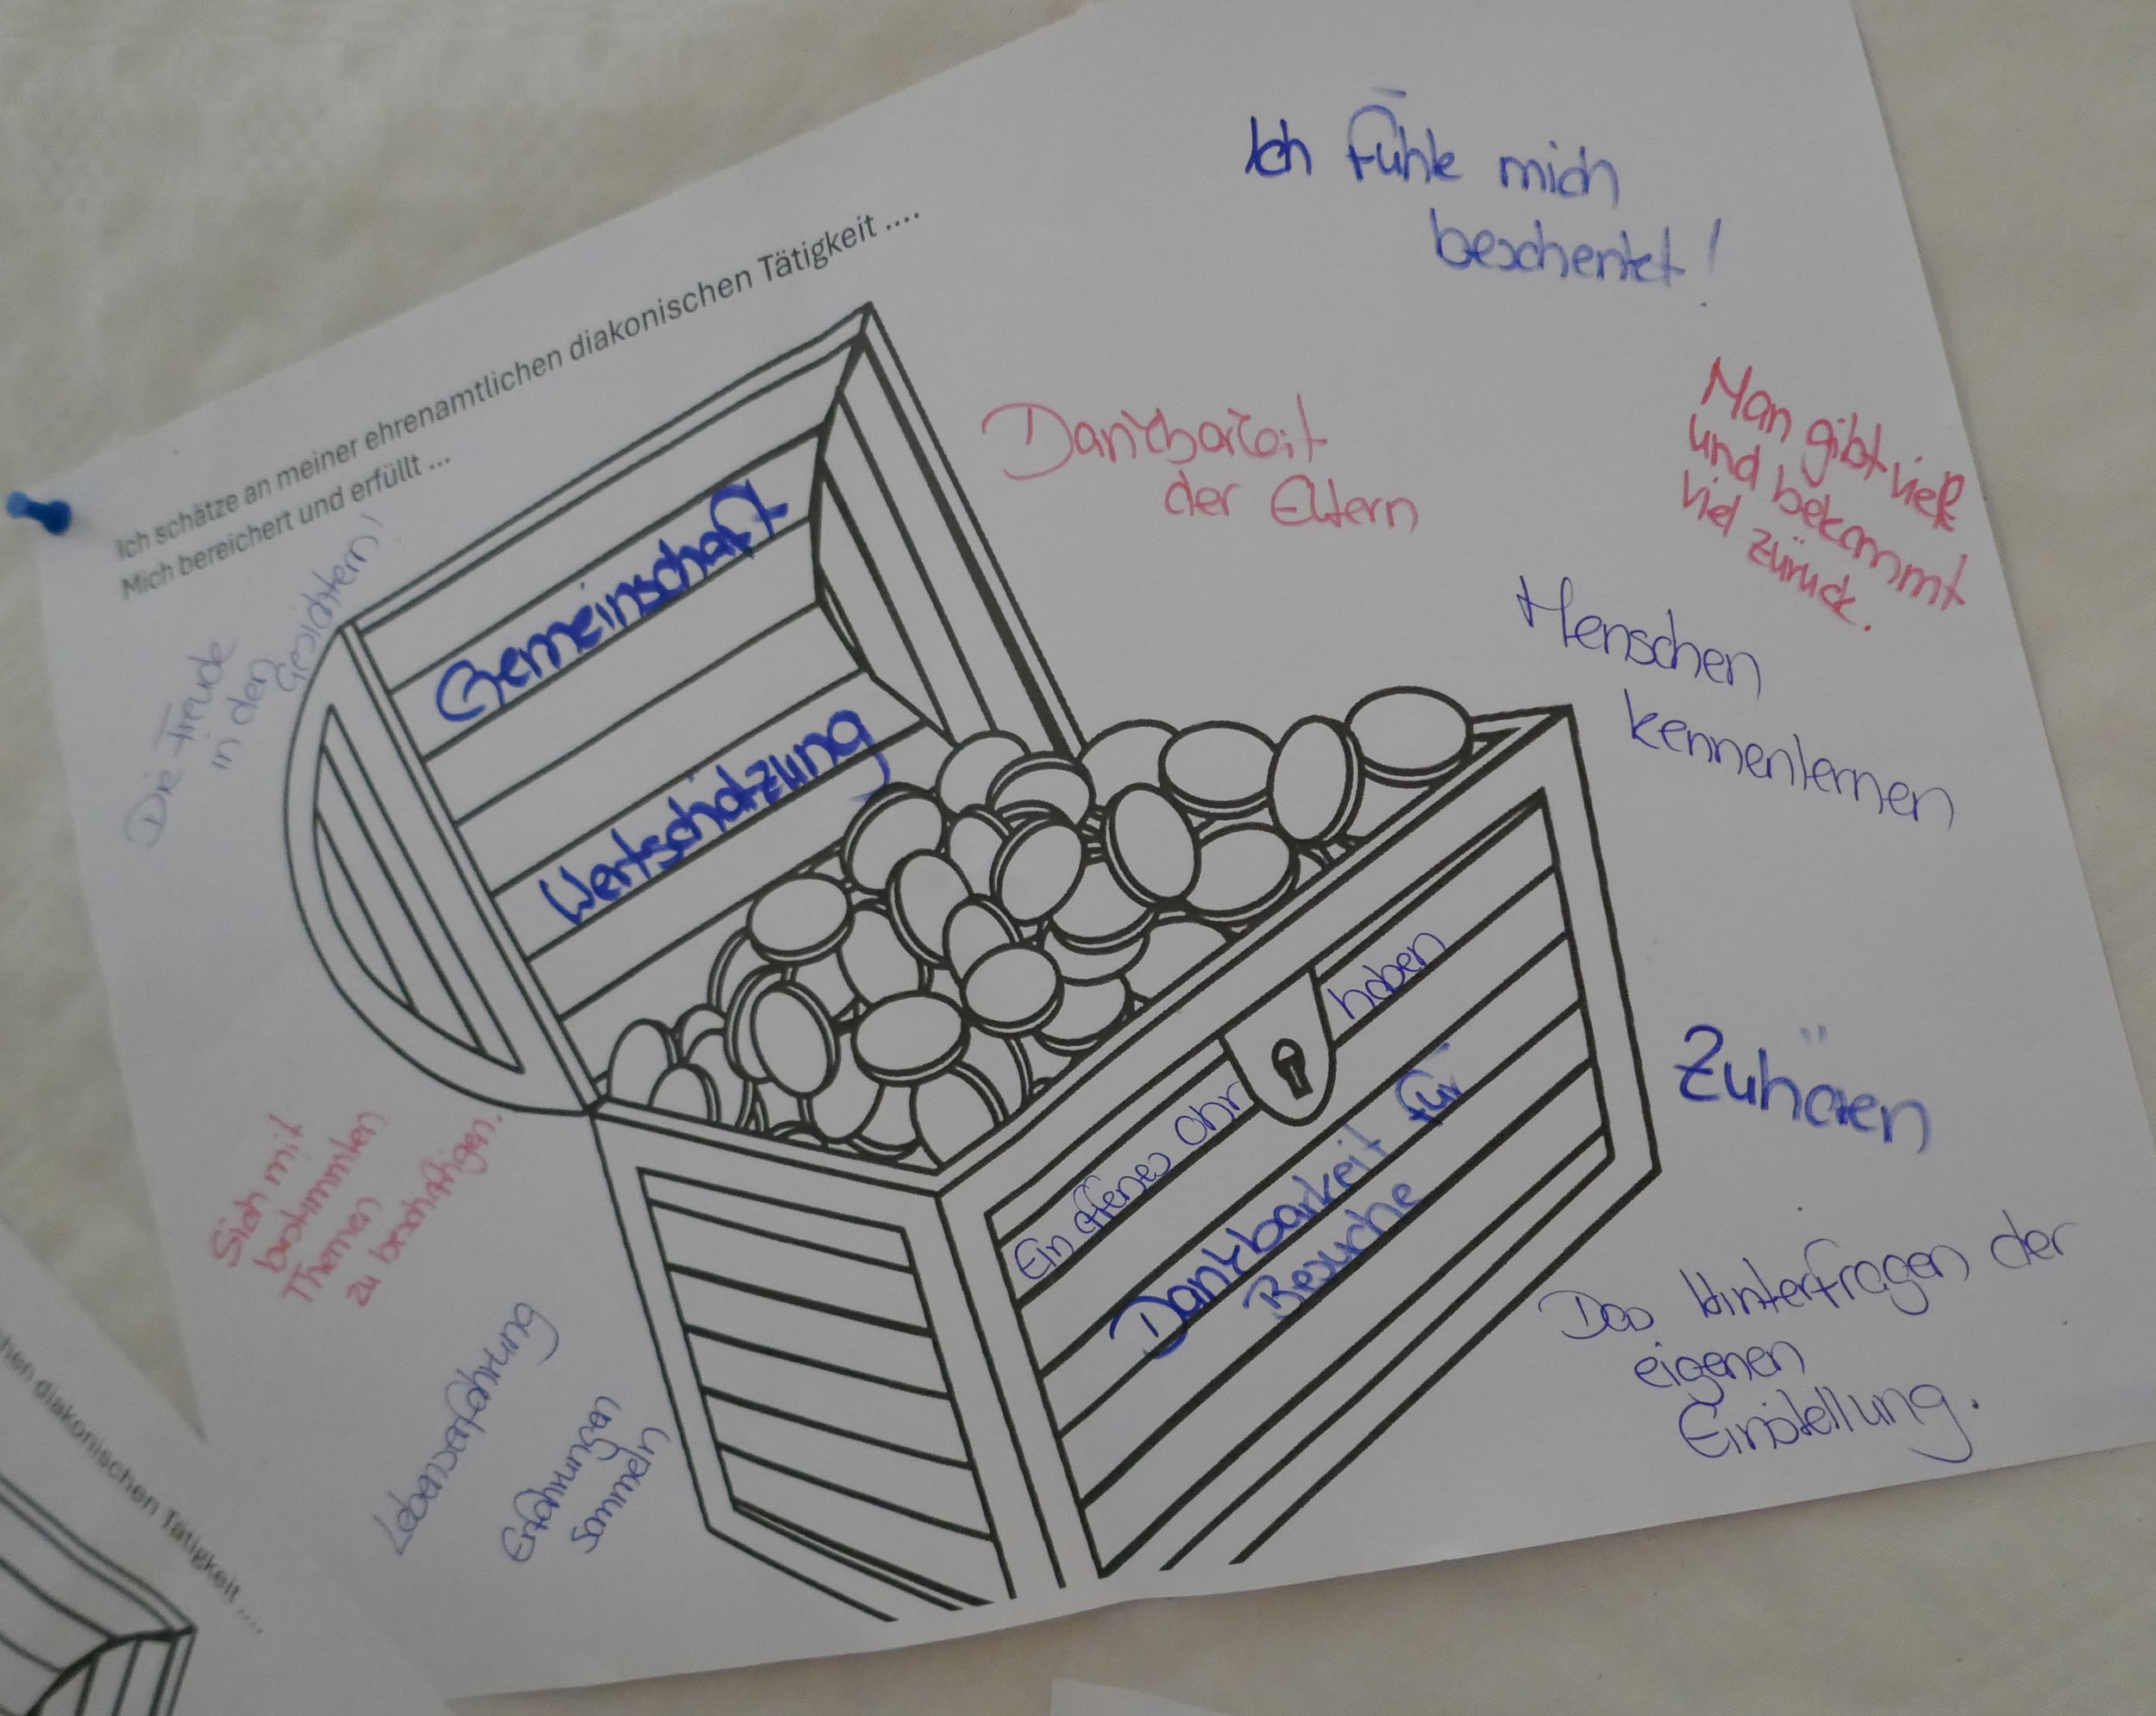 Ich schätze an meiner ehrenamtlichen diakonischen Tätigkeit ....
Mich bereichert und erfüllt ...
Ich fühle mich
beschenkt!
Dankbarkeit
der Eltern
Man gibt viel
und bekommt
viel zurück.
Menschen
kennenlernen
Die Freude
in den
Gesichtern!
Gemeinschaft
Wertschätzung
Ein offenes Ohr haben
Dankbarkeit für
Besuche
Zuhören
Das Hinterfragen der
eigenen
Einstellung.
Sich mit
bestimmten
Themen
zu beschäftigen.
Lebenserfahrung
Erfahrungen
sammeln
hen diakonischen Tätigkeit ....